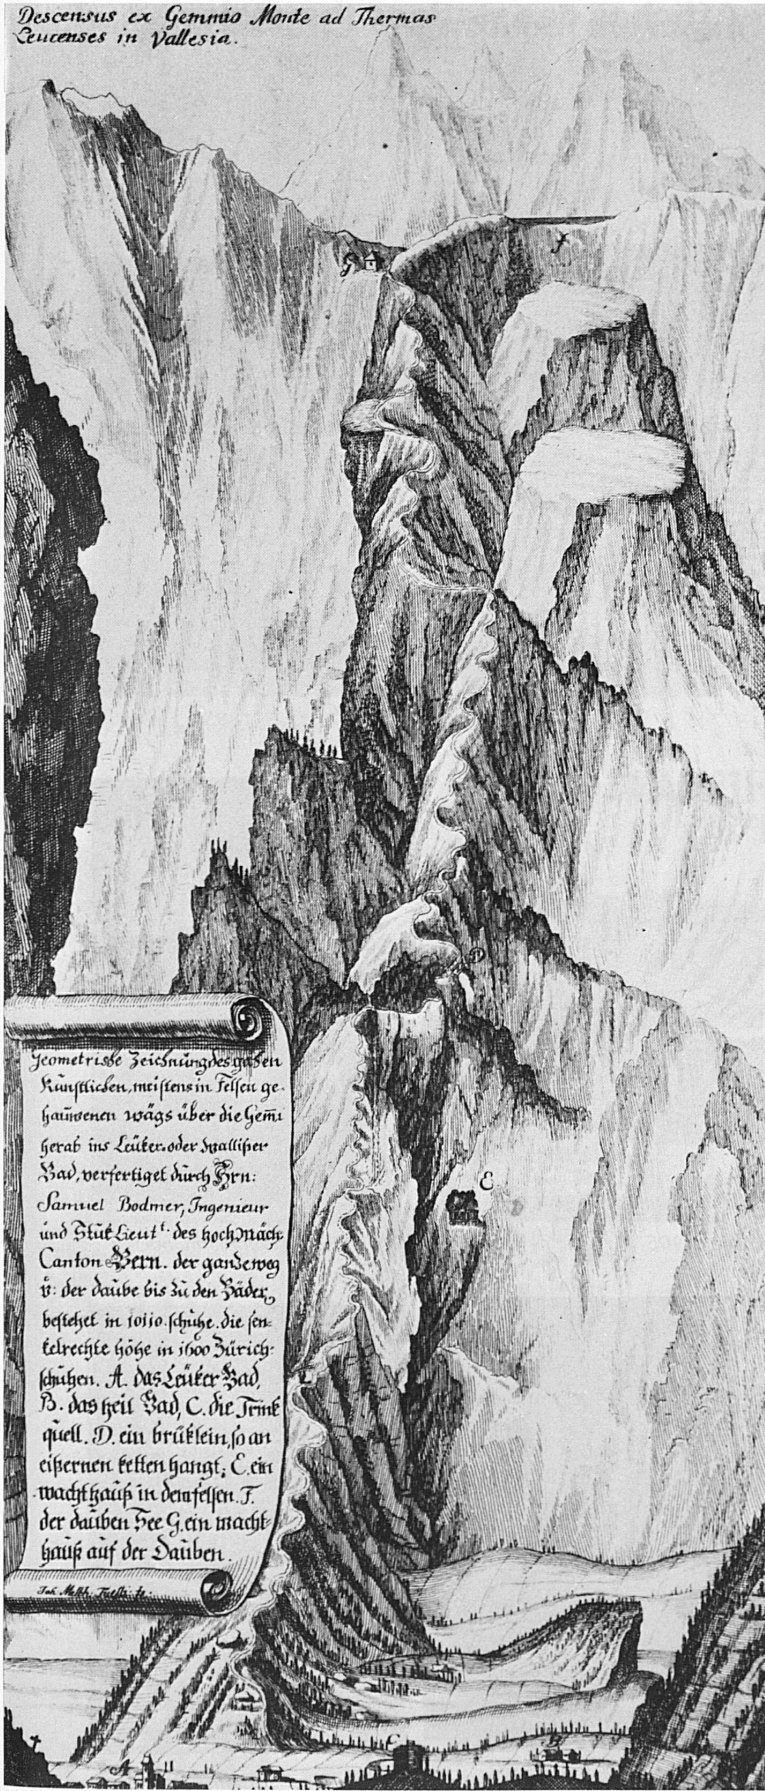 Descensus ex Gemmio Monte ad Thermas
Leucenses in Vallesia.
G
f
D
E
Geometrische Zeichnung des gantzen
Künstlichen, meistens in Felsen ge-
hauwenen wägs über die Gem̄i
herab ins Leüker oder Walliser
Bad, verfertiget durch Hrn:
Samuel Bodmer, Ingenieur
und Stuk Lieut.t des hoch Mäch.
Canton Bern. der gantze weg
v: der daube bis zu den Bäder,
bestehet in 10110 schuhe. die sen-
kelrechte höhe in 1600 Zürich-
schuhen. A. das Leüker Bad,
B. das heil Bad, C. die Trink
quell. D. ein brüklein, so an
eisernen ketten hangt; E. ein
wachthauß in dem felsen. F.
der dauben See G. ein wacht-
hauß auf der Dauben.
Joh. Melch. Füessli. fe.
A
C
B